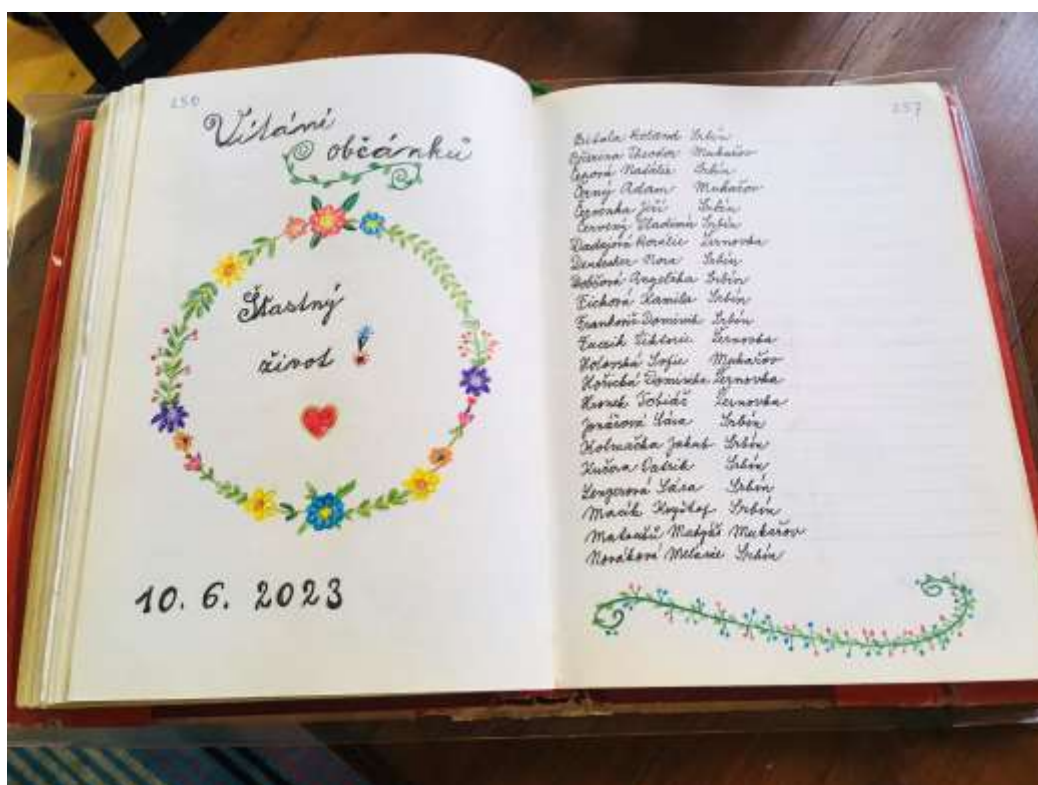 256
Vítání
občánků
Šťastný
život !
10. 6. 2023
257
Bitala Roland Srbín
Theodor Mukařov
Čepová Natálie Srbín
Černý Adam Mukařov
Červenka Jiří Srbín
Červený Vladimír Srbín
Dadejová Rozálie Žernovka
Nora Srbín
Dobšová Angelika Srbín
Eichová Kamila Srbín
Dominik Srbín
Fucsik Viktorie Žernovka
Holovská Sofie Mukařov
Hořická Dominika Žernovka
Hronek Tobiáš Žernovka
Jonášová Sára Srbín
Kolmačka Jakub Srbín
Kučera Patrik Srbín
Lengerová Sára Srbín
Macík Kryštof Srbín
Matoušů Matyáš Mukařov
Nováková Melanie Srbín